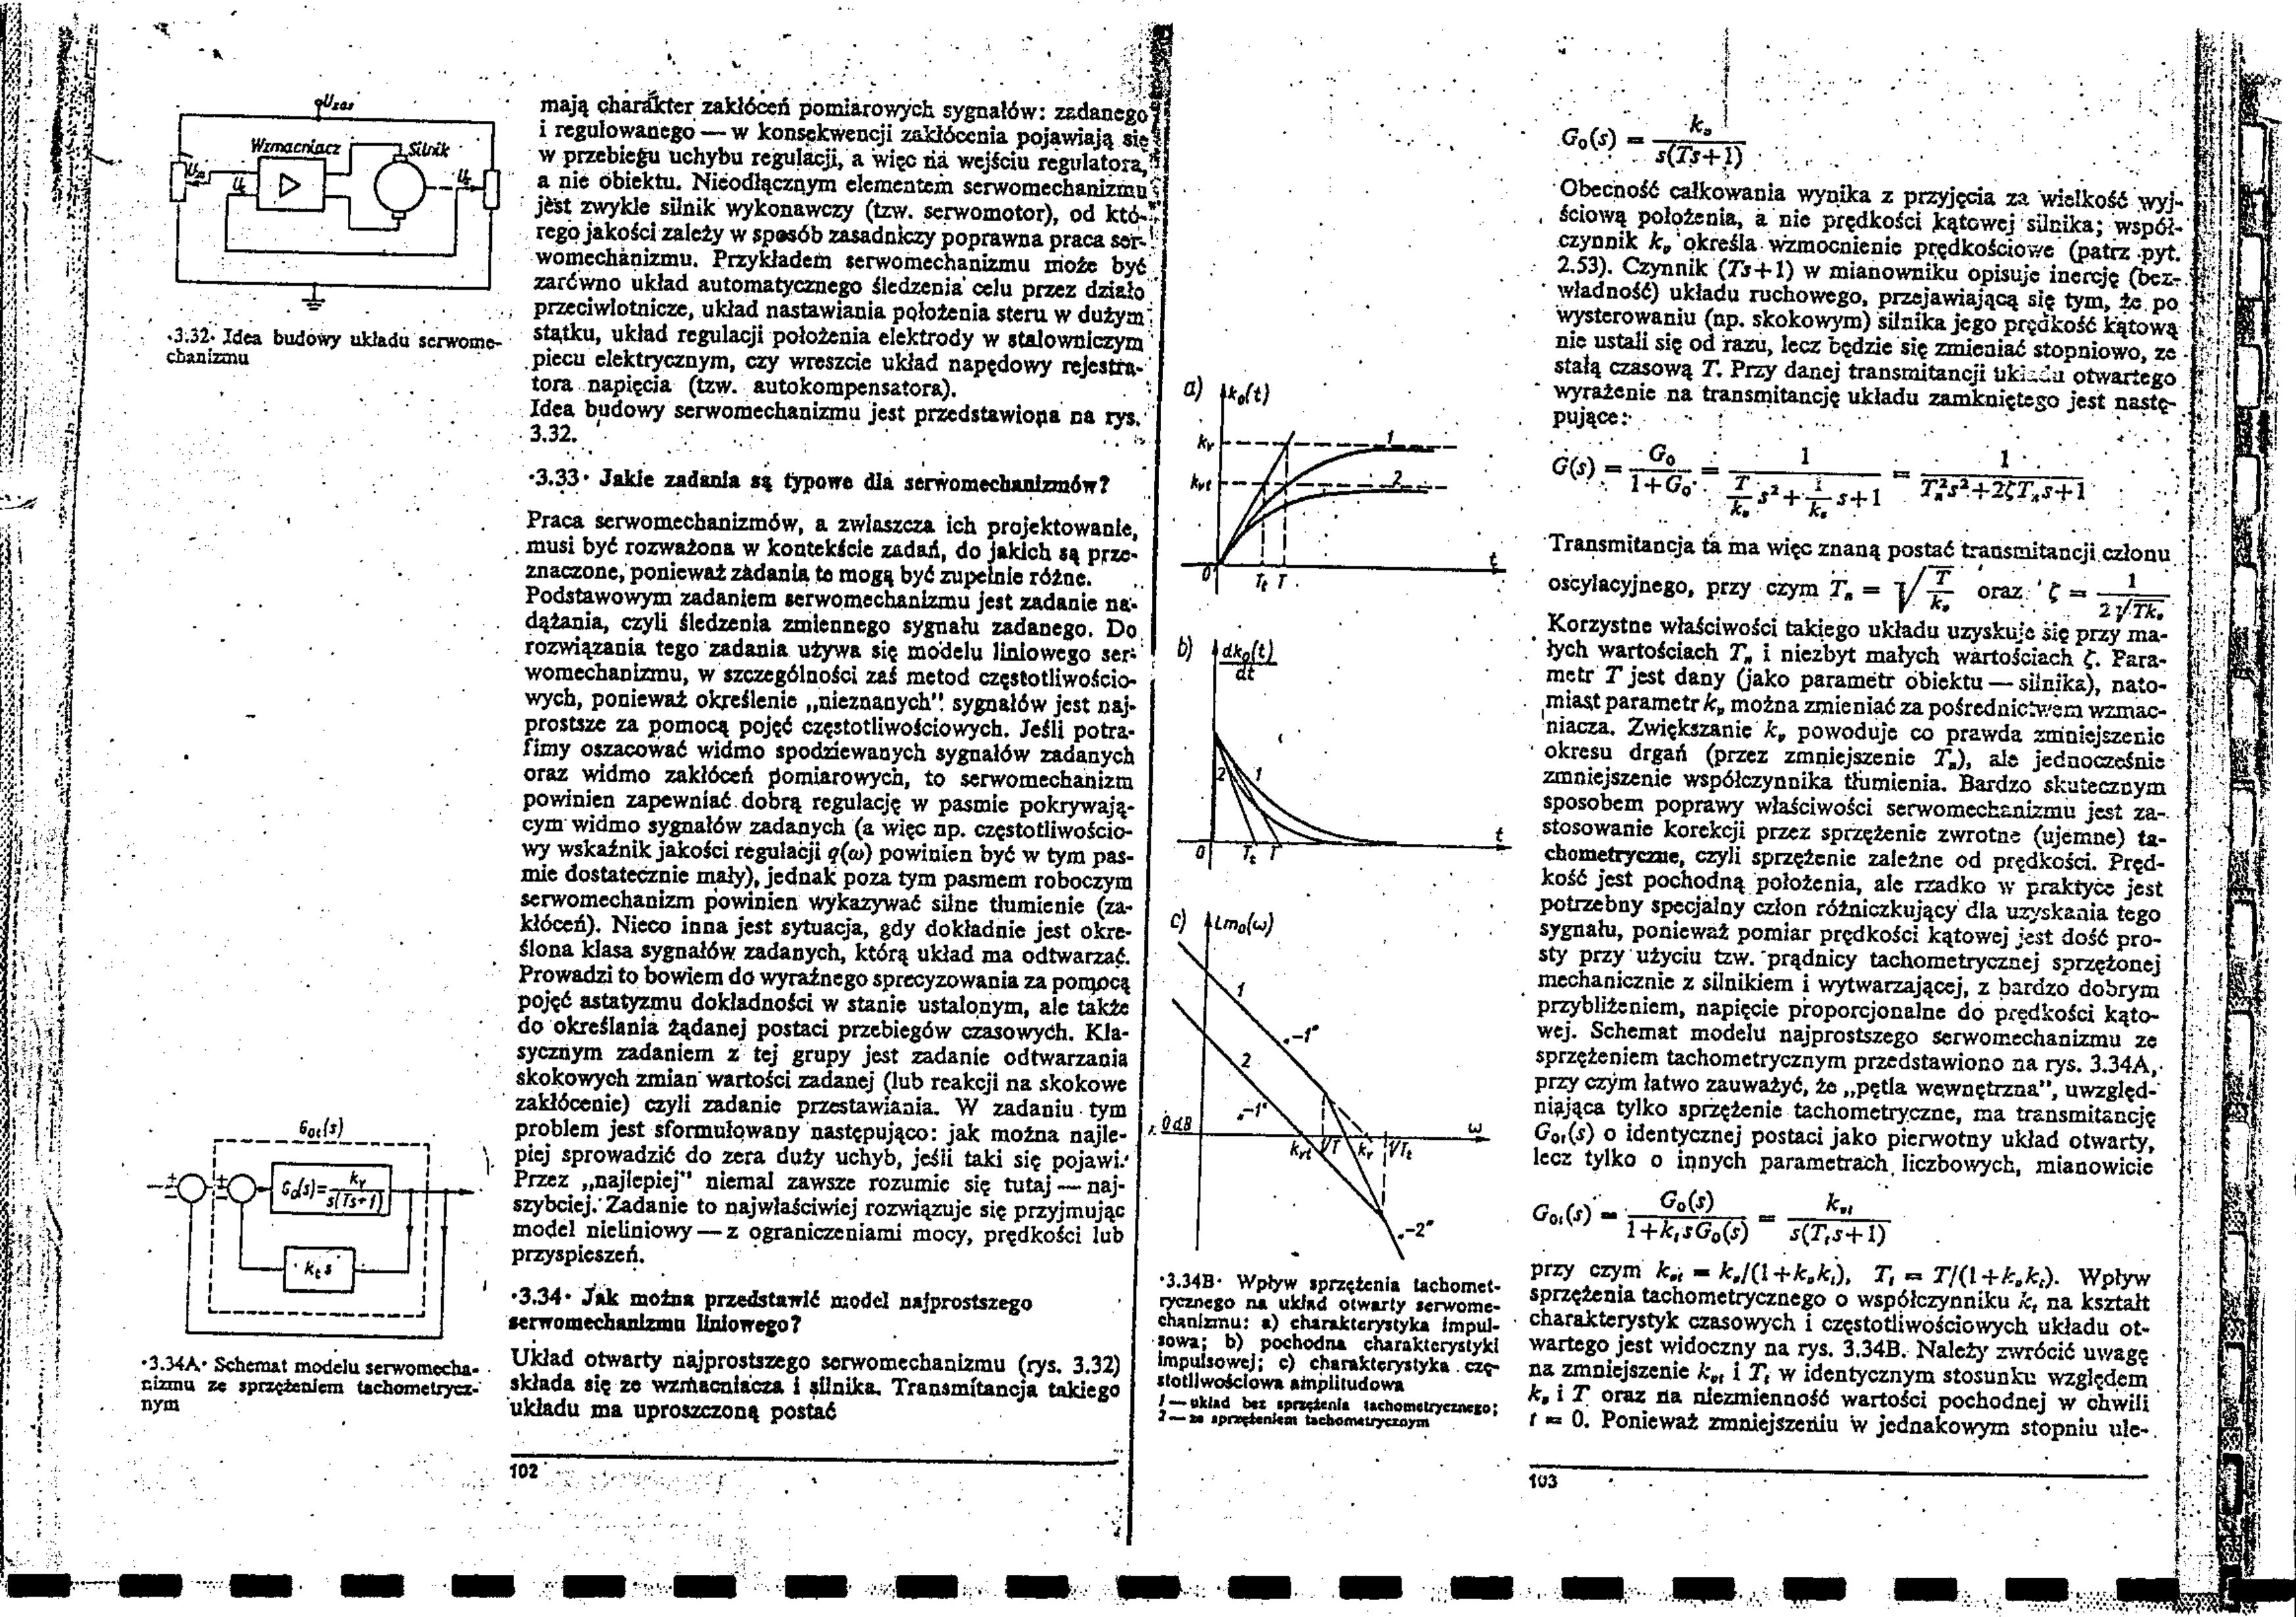 Uzas
Wzmacniacz
Silnik
·3.32· Idea budowy układu serwome-
chanizmu
G₀ₜ(s)
G₀(s)= kᵥ / s(Ts+1)
kₜs
·3.34A· Schemat modelu serwomecha-
nizmu ze sprzężeniem tachometrycz-
nym
mają charakter zakłóceń pomiarowych sygnałów: zadanego
i regulowanego — w konsekwencji zakłócenia pojawiają się
w przebiegu uchybu regulacji, a więc na wejściu regulatora,
a nie obiektu. Nieodłącznym elementem serwomechanizmu
jest zwykle silnik wykonawczy (tzw. serwomotor), od któ-
rego jakości zależy w sposób zasadniczy poprawna praca ser-
womechanizmu. Przykładem serwomechanizmu może być
zarówno układ automatycznego śledzenia celu przez działo
przeciwlotnicze, układ nastawiania położenia steru w dużym
statku, układ regulacji położenia elektrody w stalowniczym
piecu elektrycznym, czy wreszcie układ napędowy rejestra-
tora napięcia (tzw. autokompensatora).
Idea budowy serwomechanizmu jest przedstawiona na rys.
3.32.
·3.33· Jakie zadania są typowe dla serwomechanizmów?
Praca serwomechanizmów, a zwłaszcza ich projektowanie,
musi być rozważona w kontekście zadań, do jakich są prze-
znaczone, ponieważ zadania te mogą być zupełnie różne.
Podstawowym zadaniem serwomechanizmu jest zadanie na-
dążania, czyli śledzenia zmiennego sygnału zadanego. Do
rozwiązania tego zadania używa się modelu liniowego ser-
womechanizmu, w szczególności zaś metod częstotliwościo-
wych, ponieważ określenie „nieznanych" sygnałów jest naj-
prostsze za pomocą pojęć częstotliwościowych. Jeśli potra-
fimy oszacować widmo spodziewanych sygnałów zadanych
oraz widmo zakłóceń pomiarowych, to serwomechanizm
powinien zapewniać dobrą regulację w pasmie pokrywają-
cym widmo sygnałów zadanych (a więc np. częstotliwościo-
wy wskaźnik jakości regulacji q(ω) powinien być w tym pas-
mie dostatecznie mały), jednak poza tym pasmem roboczym
serwomechanizm powinien wykazywać silne tłumienie (za-
kłóceń). Nieco inna jest sytuacja, gdy dokładnie jest okre-
ślona klasa sygnałów zadanych, którą układ ma odtwarzać.
Prowadzi to bowiem do wyraźnego sprecyzowania za pomocą
pojęć astatyzmu dokładności w stanie ustalonym, ale także
do określania żądanej postaci przebiegów czasowych. Kla-
sycznym zadaniem z tej grupy jest zadanie odtwarzania
skokowych zmian wartości zadanej (lub reakcji na skokowe
zakłócenie) czyli zadanie przestawiania. W zadaniu tym
problem jest sformułowany następująco: jak można najle-
piej sprowadzić do zera duży uchyb, jeśli taki się pojawi.
Przez „najlepiej" niemal zawsze rozumie się tutaj — naj-
szybciej. Zadanie to najwłaściwiej rozwiązuje się przyjmując
model nieliniowy — z ograniczeniami mocy, prędkości lub
przyspieszeń.
·3.34· Jak można przedstawić model najprostszego
serwomechanizmu liniowego?
Układ otwarty najprostszego serwomechanizmu (rys. 3.32)
składa się ze wzmacniacza i silnika. Transmitancja takiego
układu ma uproszczoną postać
102
a) k₀(t)
kᵥ
1
kᵥₜ
2
0 Tₜ T t
b) dk₀(t)/dt
2 1
0 Tₜ T t
c) Lm₀(ω)
1
„-1"
2
„-1"
0 dB kᵥₜ 1/T kᵥ 1/Tₜ ω
„-2"
·3.34B· Wpływ sprzężenia tachomet-
rycznego na układ otwarty serwome-
chanizmu: a) charakterystyka impul-
sowa; b) pochodna charakterystyki
impulsowej; c) charakterystyka czę-
stotliwościowa amplitudowa
1 — układ bez sprzężenia tachometrycznego;
2 — ze sprzężeniem tachometrycznym
G₀(s) = kᵥ / s(Ts+1)
Obecność całkowania wynika z przyjęcia za wielkość wyj-
ściową położenia, a nie prędkości kątowej silnika; współ-
czynnik kᵥ określa wzmocnienie prędkościowe (patrz pyt.
2.53). Czynnik (Ts+1) w mianowniku opisuje inercję (bez-
władność) układu ruchowego, przejawiającą się tym, że po
wysterowaniu (np. skokowym) silnika jego prędkość kątową
nie ustali się od razu, lecz będzie się zmieniać stopniowo, ze
stałą czasową T. Przy danej transmitancji układu otwartego
wyrażenie na transmitancję układu zamkniętego jest nastę-
pujące:
G(s) = G₀ / (1+G₀) = 1 / (T/kᵥ s² + 1/kᵥ s + 1) = 1 / (Tₙ²s²+2ζTₙs+1)
Transmitancja ta ma więc znaną postać transmitancji członu
oscylacyjnego, przy czym Tₙ = √(T/kᵥ) oraz ζ = 1 / (2√(Tkᵥ))
Korzystne właściwości takiego układu uzyskuje się przy ma-
łych wartościach Tₙ i niezbyt małych wartościach ζ. Para-
metr T jest dany (jako parametr obiektu — silnika), nato-
miast parametr kᵥ można zmieniać za pośrednictwem wzmac-
niacza. Zwiększanie kᵥ powoduje co prawda zmniejszenie
okresu drgań (przez zmniejszenie Tₙ), ale jednocześnie
zmniejszenie współczynnika tłumienia. Bardzo skutecznym
sposobem poprawy właściwości serwomechanizmu jest za-
stosowanie korekcji przez sprzężenie zwrotne (ujemne) ta-
chometryczne, czyli sprzężenie zależne od prędkości. Pręd-
kość jest pochodną położenia, ale rzadko w praktyce jest
potrzebny specjalny człon różniczkujący dla uzyskania tego
sygnału, ponieważ pomiar prędkości kątowej jest dość pro-
sty przy użyciu tzw. prądnicy tachometrycznej sprzężonej
mechanicznie z silnikiem i wytwarzającej, z bardzo dobrym
przybliżeniem, napięcie proporcjonalne do prędkości kąto-
wej. Schemat modelu najprostszego serwomechanizmu ze
sprzężeniem tachometrycznym przedstawiono na rys. 3.34A,
przy czym łatwo zauważyć, że „pętla wewnętrzna", uwzględ-
niająca tylko sprzężenie tachometryczne, ma transmitancję
G₀ₜ(s) o identycznej postaci jako pierwotny układ otwarty,
lecz tylko o innych parametrach liczbowych, mianowicie
G₀ₜ(s) = G₀(s) / (1+kₜsG₀(s)) = kᵥₜ / s(Tₜs+1)
przy czym kᵥₜ = kᵥ/(1+kᵥkₜ), Tₜ = T/(1+kᵥkₜ). Wpływ
sprzężenia tachometrycznego o współczynniku kₜ na kształt
charakterystyk czasowych i częstotliwościowych układu ot-
wartego jest widoczny na rys. 3.34B. Należy zwrócić uwagę
na zmniejszenie kᵥₜ i Tₜ w identycznym stosunku względem
kᵥ i T oraz na niezmienność wartości pochodnej w chwili
t = 0. Ponieważ zmniejszeniu w jednakowym stopniu ule-
103